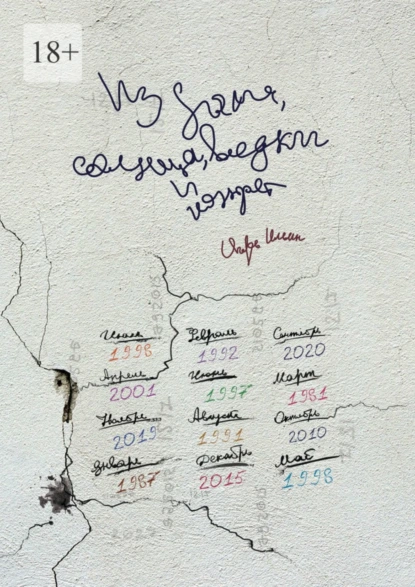 18+
Из
солнца, водки
и
Игорь
Июль Февраль Сентябрь
1998 1992 2020
Апрель Июнь Март
2001 1997 1981
Ноябрь Август Октябрь
2019 1991 2010
Январь Декабрь Май
1987 2015 1998